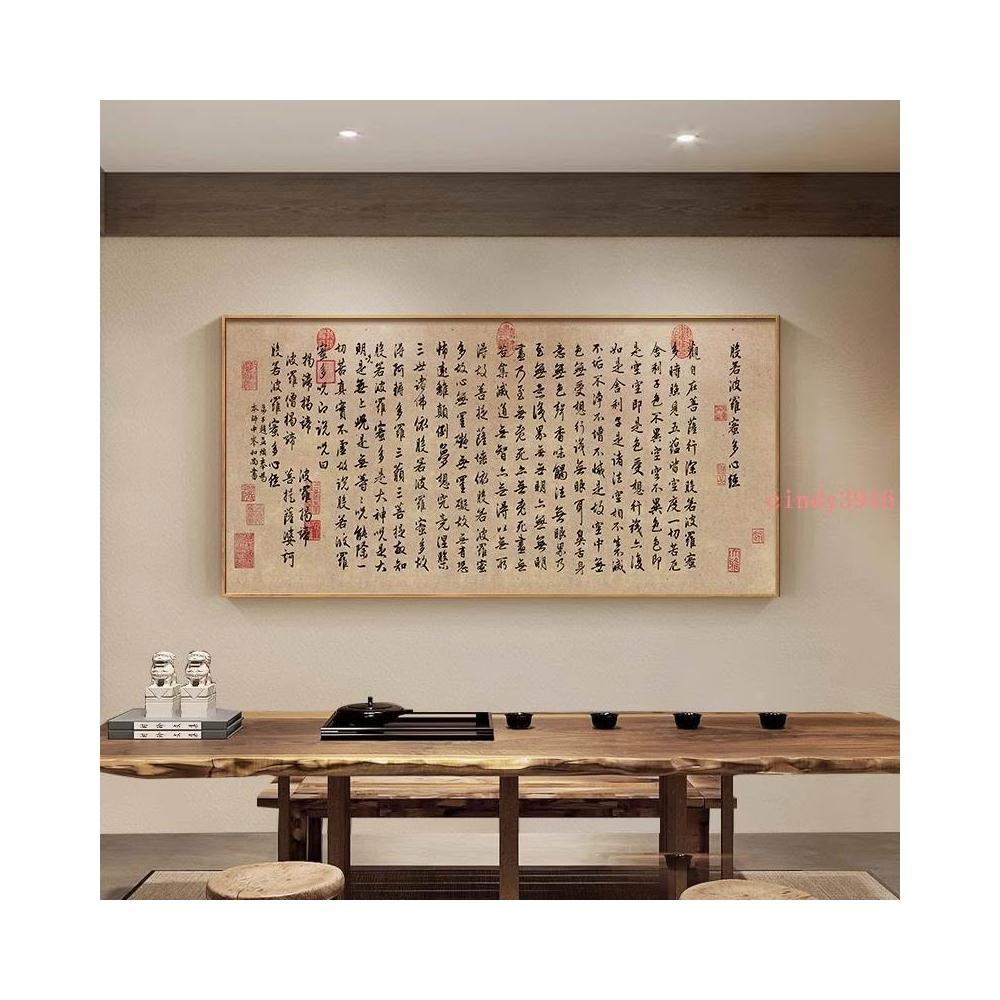 般若波羅蜜多心經
觀自在菩薩行深般若波羅蜜
多時照見五蘊皆空度一切苦厄
舍利子色不異空空不異色色即
是空空即是色受想行識亦復
如是舍利子是諸法空相不生滅
不垢不淨不增不減是故空中無
色無受想行識無眼耳鼻舌身
意無色聲香味觸法無眼界乃
至無意識界無無明亦無無明
盡乃至無老死亦無老死盡無
苦集滅道無智亦無得以無所
得故菩提薩埵依般若波羅蜜
多故心無罣礙無罣礙故無有恐
怖遠離顛倒夢想究竟涅槃
三世諸佛依般若波羅蜜多故
得阿耨多羅三藐三菩提故知
般若波羅蜜多是大神咒是大
明咒是無上咒是無等〻咒能除一
切苦真實不虛故說般若波羅
蜜多咒即說咒曰
揭諦揭諦 波羅揭諦
波羅僧揭諦 菩提薩婆訶
般若波羅蜜多心經
弟子趙孟頫奉為
本師中峯和尚書
cindy3946